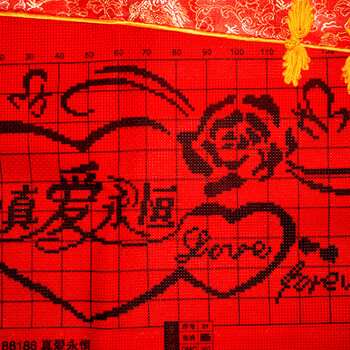 30 40 50 60 70 80 90 100 110 120
真爱永恒
Love
forev
88186 真爱永恒